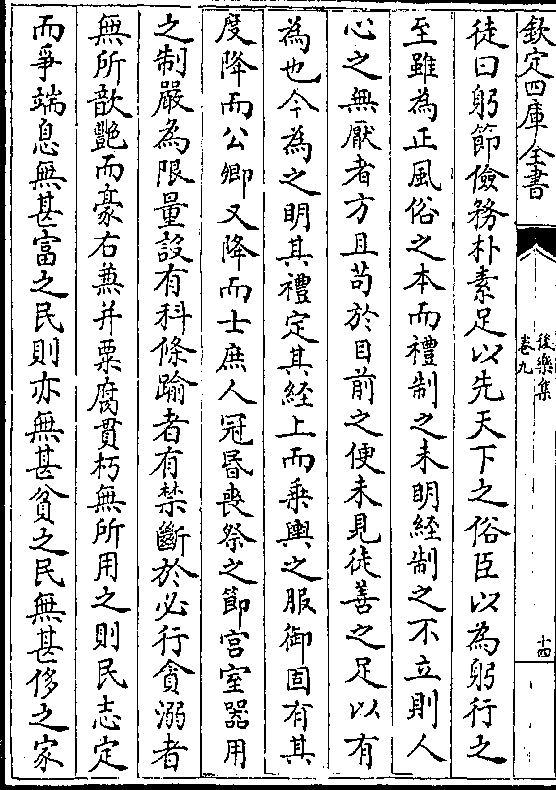 欽定四庫全書
後樂集
卷九
十四
徒曰躬節儉務朴素足以先天下之俗臣以為躬行之
至雖為正風俗之本而禮制之未明經制之不立則人
心之無厭者方且苟於目前之便未見徒善之足以有
為也今為之明其禮定其經上而乗輿之服御固有其
度降而公卿又降而士庶人冠昬喪祭之節宫室器用
之制嚴為限量設有科條踰者有禁斷於必行貪溺者
無所歆艷而豪右兼并粟腐貫朽無所用之則民志定
而爭端息無甚富之民則亦無甚貧之民無甚侈之家